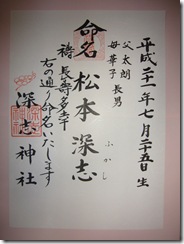 平成二十一年七月二十五生
父 太朗
母 華子 長男
命名 松本深志
ふかし
祷 長寿多幸
右の通り命名いたします
深志神社